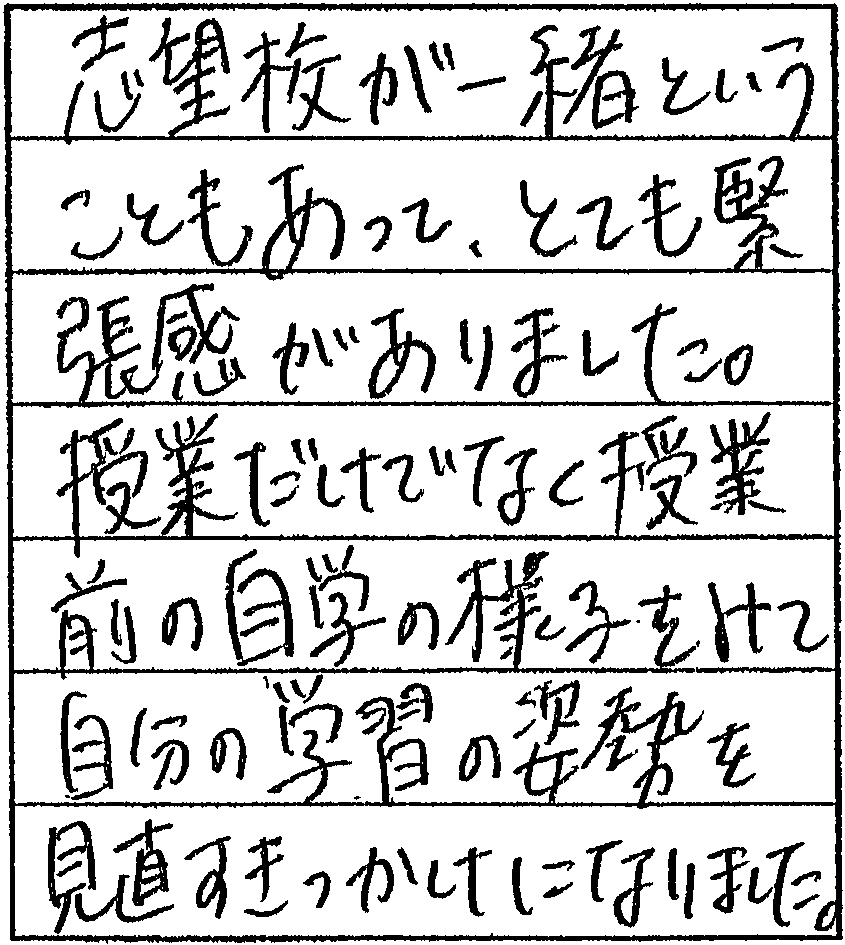 志望校が一緒という
こともあって、とても緊
張感がありました。
授業だけでなく授業
前の自学の様子をけて
自分の学習の姿勢を
見直すきっかけになりました。